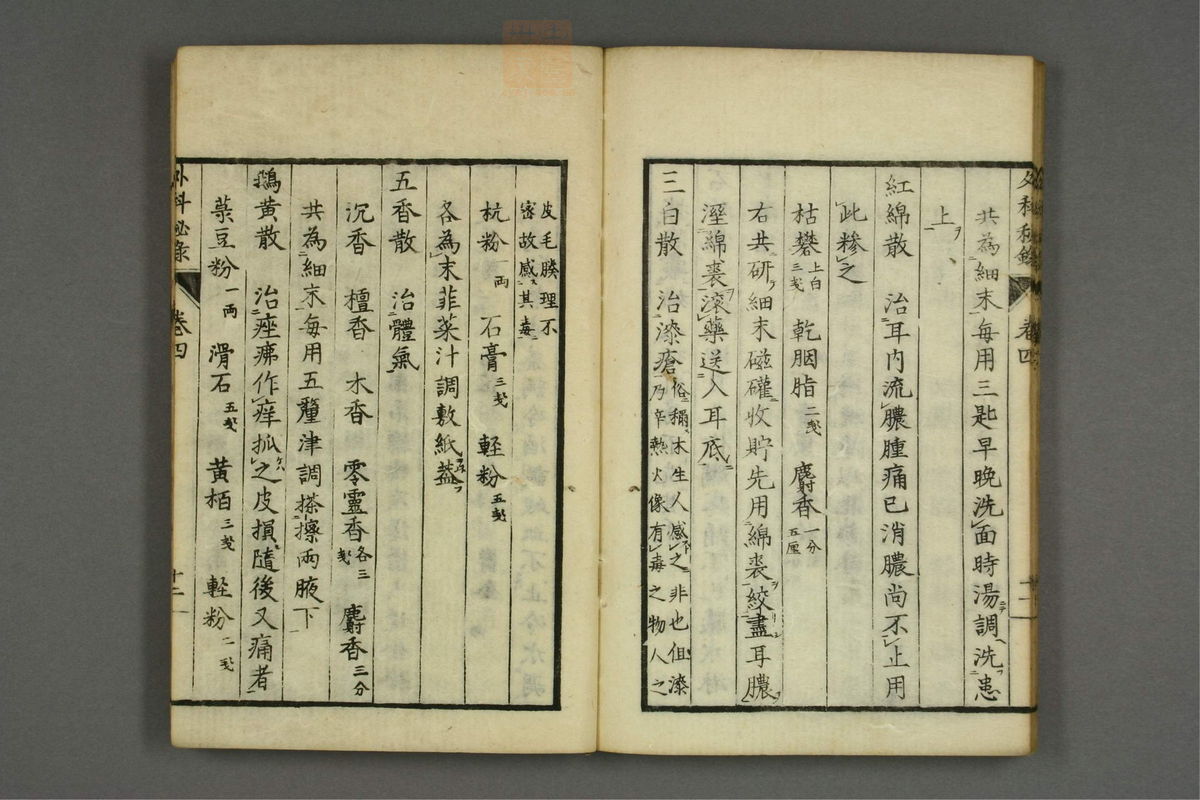 外科秘錄 卷四
共為細末每用三匙早晚洗面時湯調洗患
上
紅綿散 治耳內流膿腫痛已消膿尚不止用
此糝之
枯礬上白三戔 乾胭脂二戔 麝香一分五厘
右共研細末磁礶收貯先用綿裹絞盡耳膿
溼綿裹滾藥送入耳底
三白散 治漆瘡俗稱木生人感之非也伹漆
乃辛熱火像有毒之物人之
皮毛腠理不
密故感其毒
杭粉一兩 石膏三戔 軽粉五戔
各為末菲菜汁調敷紙葢
五香散 治體氣
沉香 檀香 木香 零靈香各三戔 麝香三分
共為細末每用五釐津調搽擦兩腋下
鵝黃散 治痤痱作痒抓之皮損隨後又痛者
菉豆粉一兩 滑石五戔 黄栢三戔 軽粉二戔
外科秘錄 卷四 十二